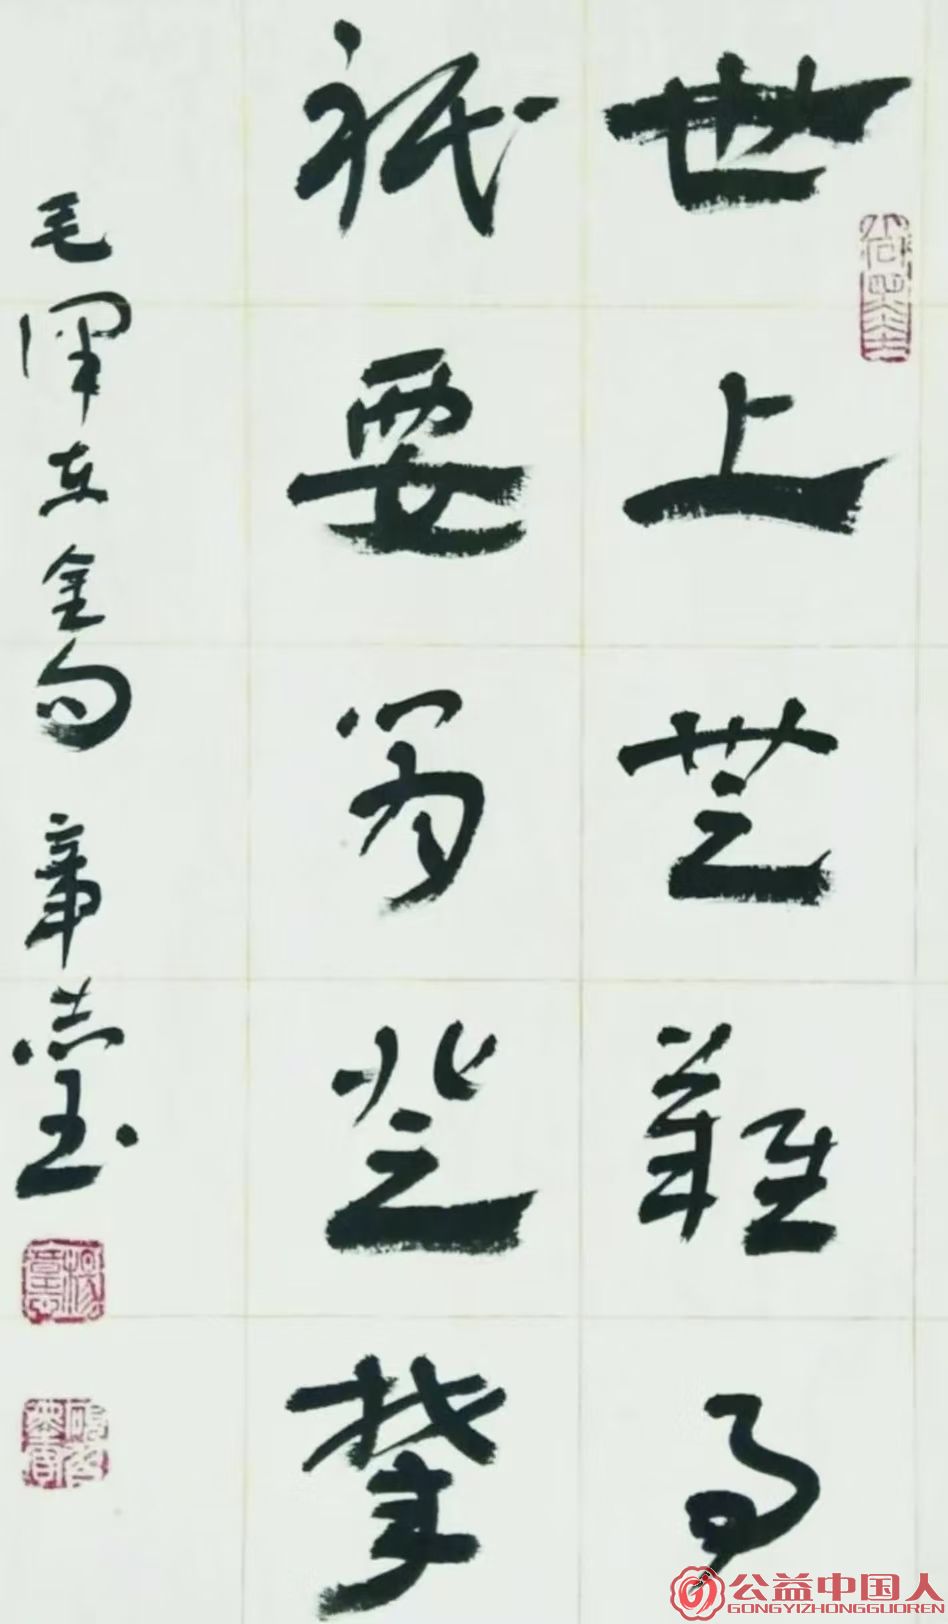 世上無難事
祇要肯登攀
毛澤東金句 章志玉
公益中国人
GONGYIZHONGGUOREN